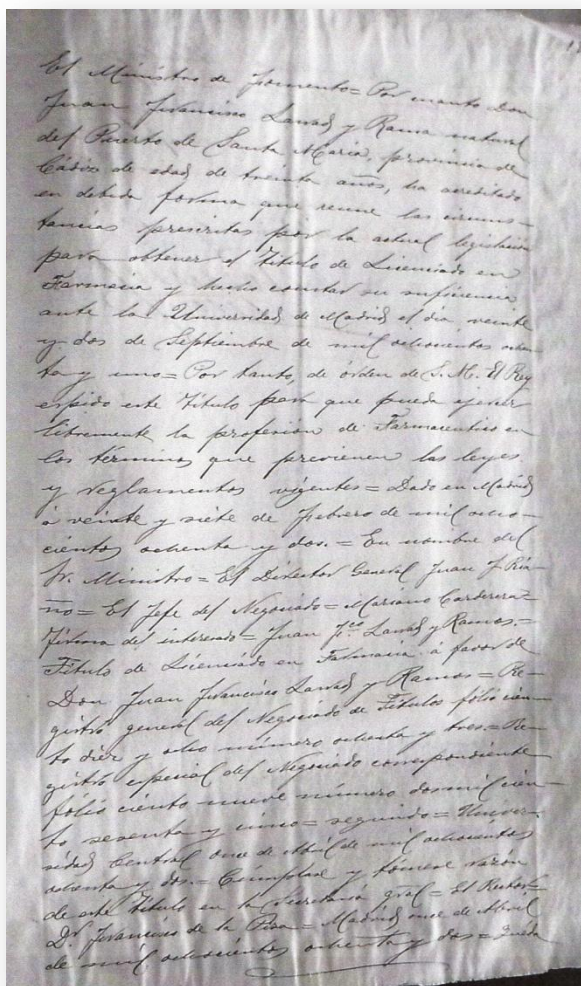 El Ministro de Fomento= Por cuanto Don
Juan Francisco Lavad y Ramos natural
del Puerto de Santa Maria, provincia de
Cádiz de edad de treinta años, ha acreditado
en debida forma que reune las circuns-
tancias prescritas por la actual legislacion
para obtener el Título de Licenciado en
Farmacia y hecho constar su suficiencia
ante la Universidad de Madrid el dia veinte
y dos de Septiembre de mil ochocientos ochen
ta y uno= Por tanto, de órden de S. M. El Rey
espido este Título para que pueda ejercer
libremente la profesion de Farmaceutico en
los términos que previenen las leyes
y reglamentos vigentes= Dado en Madrid
á veinte y siete de Febrero de mil ocho-
cientos ochenta y dos.= En nombre del
Sr. Ministro= El Director General Juan F. Ria-
ño= El Jefe del Negociado= Mariano Carderera=
Firma del interesado= Juan Fco. Lavad y Ramos.=
Título de Licenciado en Farmacia a favor de
Don Juan Francisco Lavad y Ramos= Re-
gistro general del Negociado de Títulos fólio cien-
to diez y ocho número ochenta y tres.= Re-
gistro especial del Negociado correspondiente
fólio ciento nueve número dos mil cien-
to sesenta y cinco= seguido= Univer-
sidad Central once de Abril de mil ochocientos
ochenta y dos.= Cumplase y tómese razón
de este Título en la Secretaría gral= El Rector=
Dr. Francisco de la Pisa= Madrid once de Abril
de mil ochocientos ochenta y dos= Queda